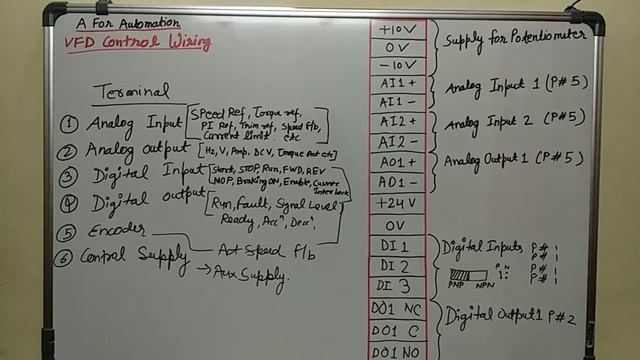 A For Automation
VFD Control Wiring
Terminal
① Analog Input [Speed Ref, Torque ref,
PI Ref, Trim ref, Speed F/b,
Current limit etc
② Analog output [Hz, V, Amp, DCV, Torque Act etc]
③ Digital Input [Start, STOP, Run, FWD, REV
MOP, Braking ON, Enable,
④ Digital output [Run, Fault, Signal Level
Ready, Accⁿ, Decⁿ,
⑤ Encoder
Act Speed F/b
⑥ Control Supply
→ Aux Supply.
+10V
0V
-10V
Supply for Potentiometer
AI1 +
AI1 -
Analog Input 1 (P#5)
AI2 +
AI2 -
Analog Input 2 (P#5)
AO1 +
AO1 -
Analog Output 1 (P#5)
+24V
0V
DI 1
DI 2
DI 3
Digital Inputs P# 1
P# 1
P# 1
P# 1
P N
PNP NPN
DO1 NC
DO1 C
DO1 NO
Digital Output 1 P#2